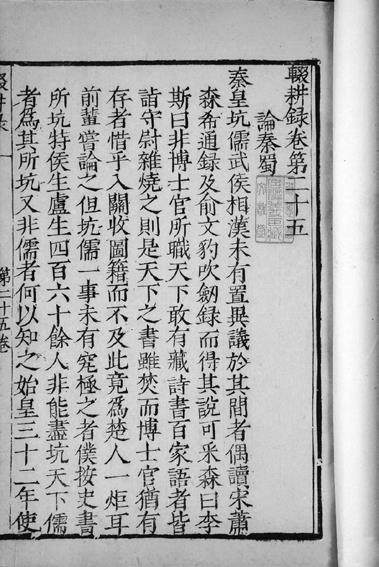 輟耕録卷第二十五
論秦蜀
秦皇坑儒武侯相漢未有置異議於其間者偶讀宋蕭
森希通録及俞文豹吹劒録而得其説可采森曰李
斯曰非博士官所職天下敢有藏詩書百家語者皆
詣守尉雜燒之則是天下之書雖焚而博士官猶有
存者惜乎入關收圖籍而不及此竟為楚人一炬耳
前輩嘗論之但坑儒一事未有究極之者僕按史書
所坑特侯生盧生四百六十餘人非能盡坑天下儒
者為其所坑又非儒者何以知之始皇三十二年使
輟耕录
第二十五卷